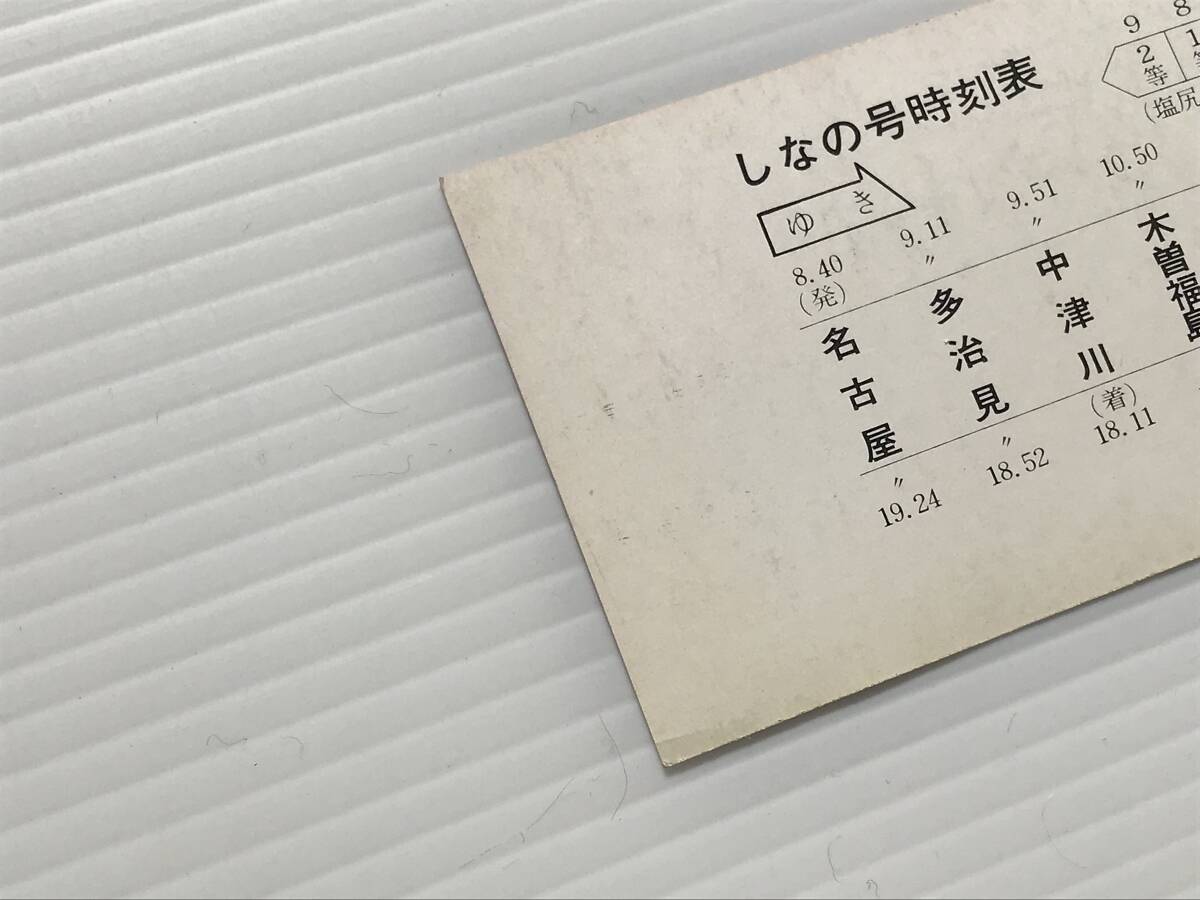 しなの号時刻表
9 8
2等 1等
(塩尻
ゆき
8.40 9.11 9.51 10.50
(発) 〃 〃 〃
名古屋 多治見 中津川 木曽福島
〃 〃 (着)
19.24 18.52 18.11